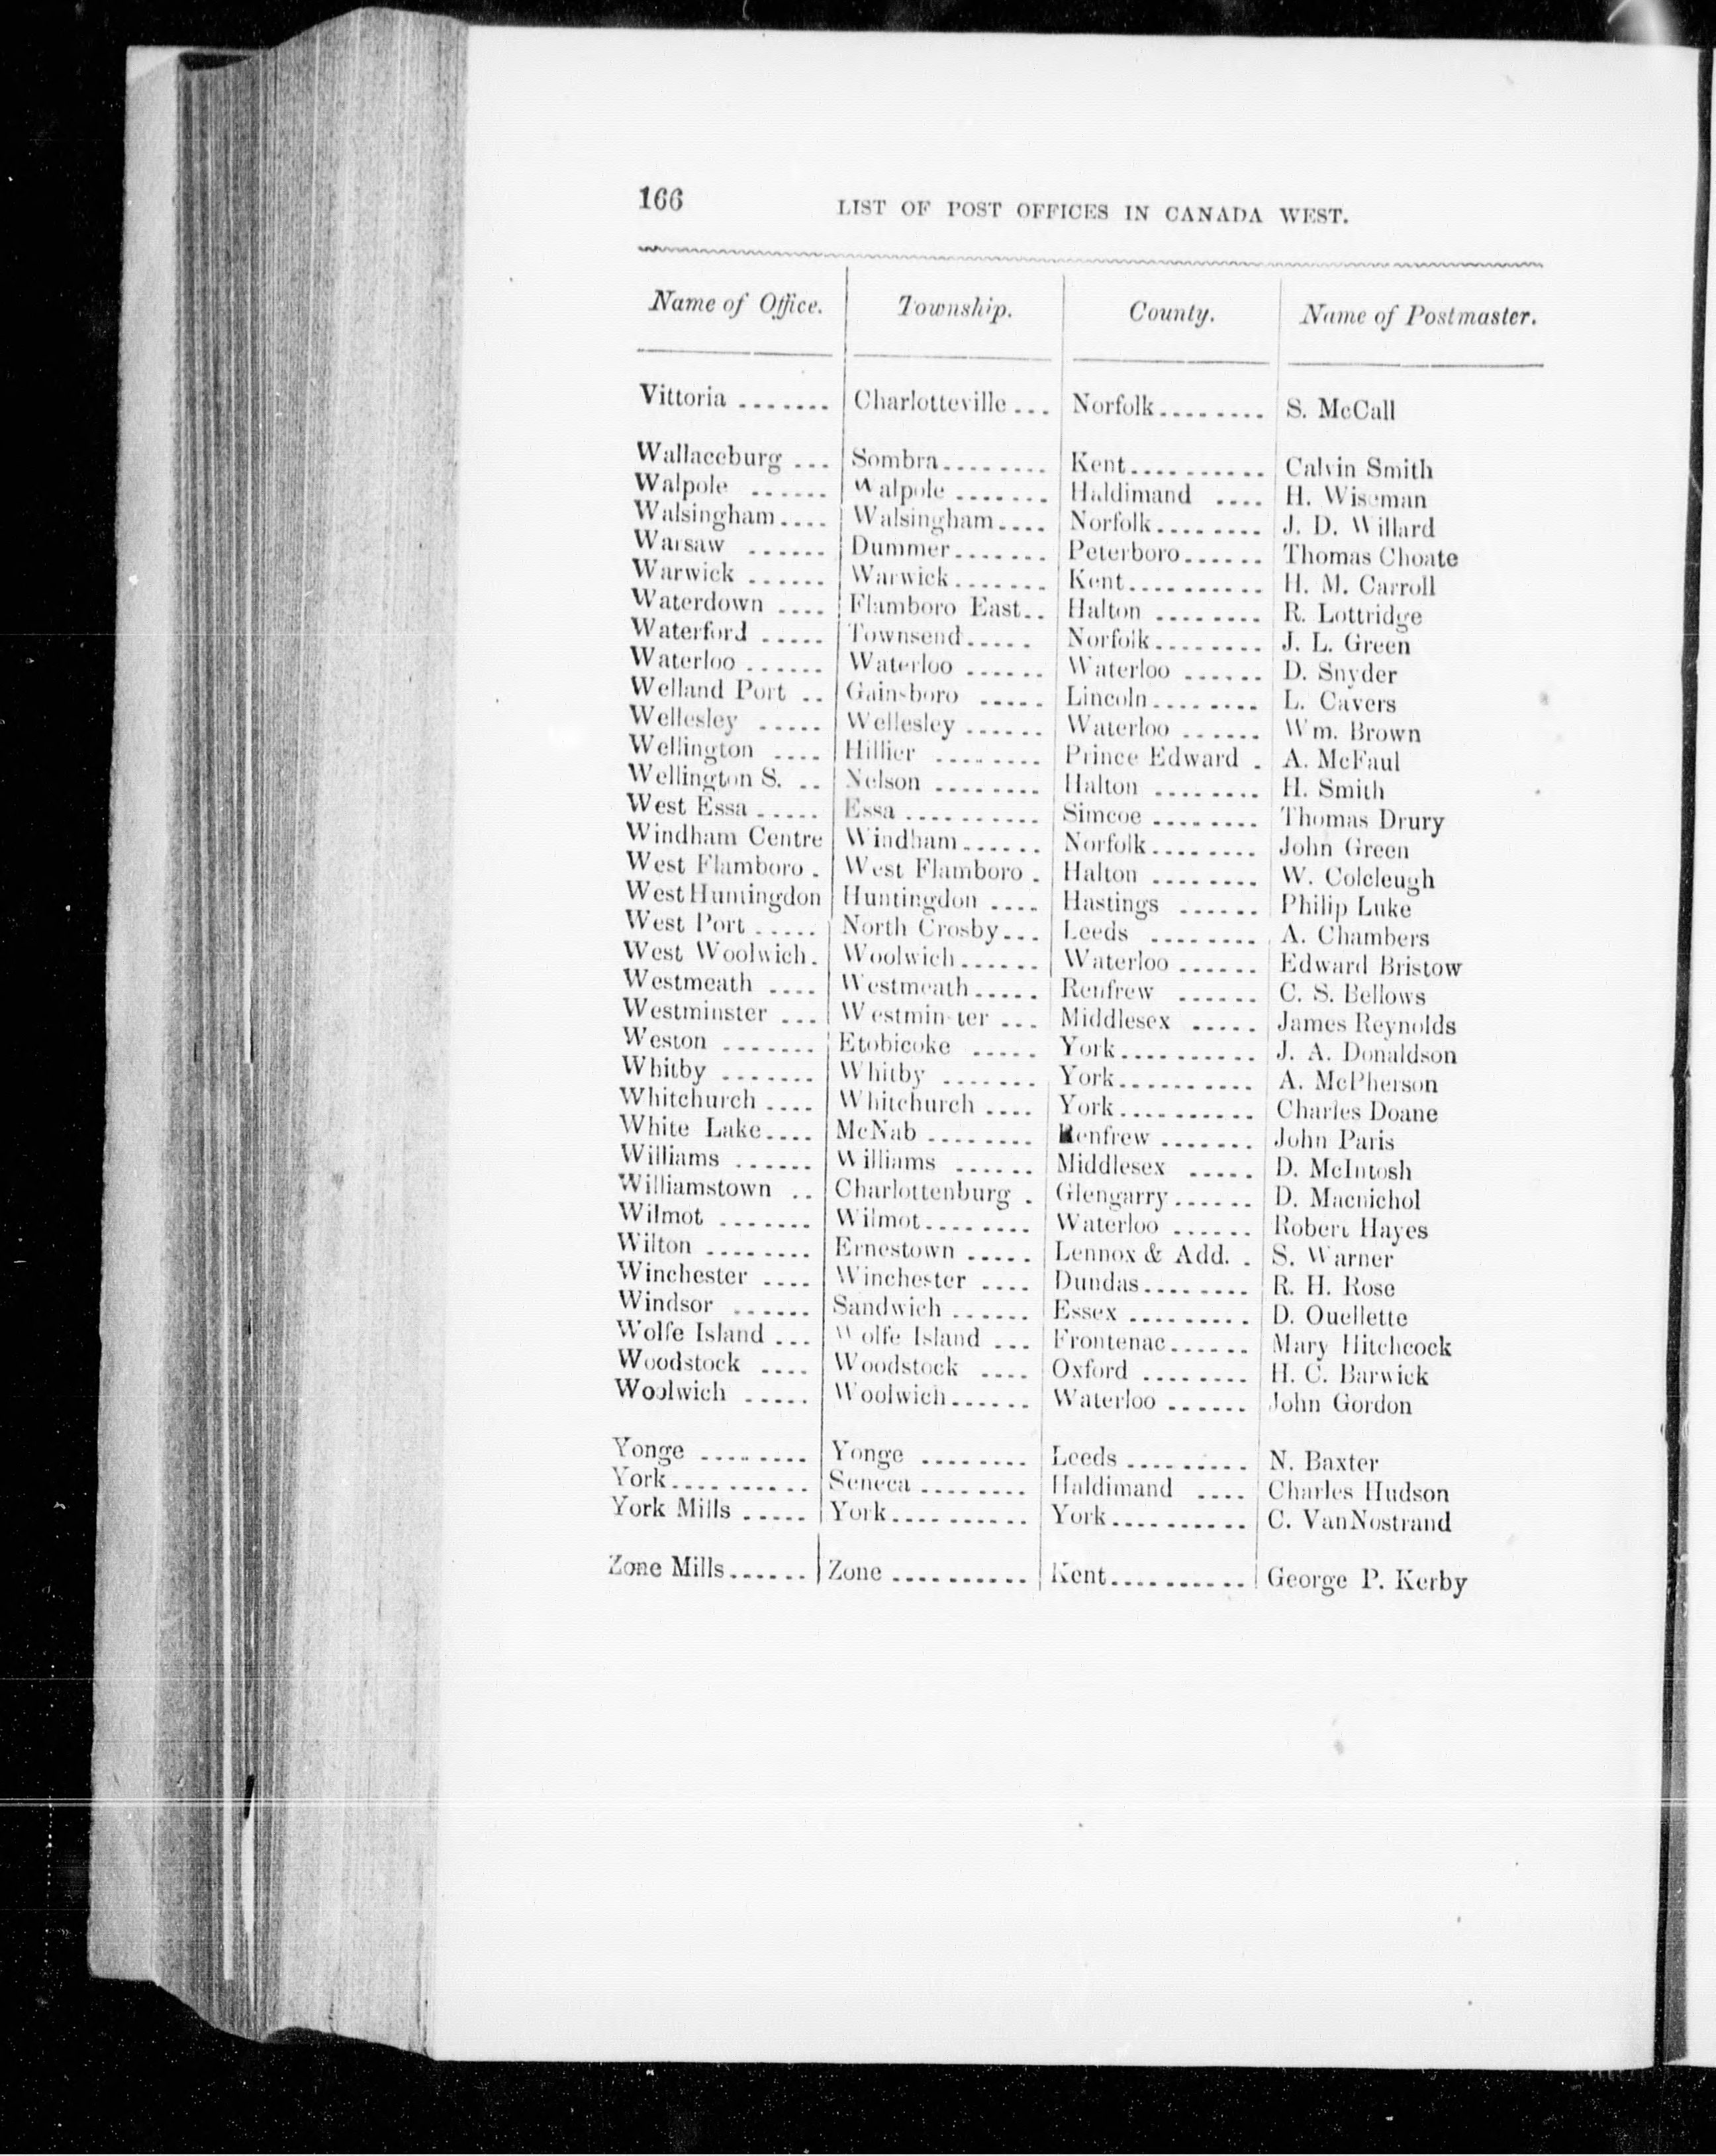 166 LIST OF POST OFFICES IN CANADA WEST.
Name of Office. Township. County. Name of Postmaster.
Vittoria ....... Charlotteville... Norfolk........ S. McCall
Wallaceburg ... Sombra........ Kent.......... Calvin Smith
Walpole ...... Walpole ....... Haldimand .... H. Wiseman
Walsingham.... Walsingham.... Norfolk........ J. D. Willard
Warsaw ...... Dummer....... Peterboro...... Thomas Choate
Warwick ...... Warwick....... Kent.......... H. M. Carroll
Waterdown .... Flamboro East.. Halton ........ R. Lottridge
Waterford ..... Townsend..... Norfolk........ J. L. Green
Waterloo ...... Waterloo ...... Waterloo ...... D. Snyder
Welland Port .. Gainsboro ..... Lincoln........ L. Cavers
Wellesley ..... Wellesley ...... Waterloo ...... Wm. Brown
Wellington .... Hillier ........ Prince Edward . A. McFaul
Wellington S. .. Nelson ........ Halton ........ H. Smith
West Essa ..... Essa .......... Simcoe ........ Thomas Drury
Windham Centre Windham...... Norfolk........ John Green
West Flamboro . West Flamboro . Halton ........ W. Colcleugh
West Huntingdon Huntingdon .... Hastings ...... Philip Luke
West Port ..... North Crosby... Leeds ........ A. Chambers
West Woolwich. Woolwich...... Waterloo ...... Edward Bristow
Westmeath .... Westmeath..... Renfrew ...... C. S. Bellows
Westminster ... Westminster ... Middlesex ..... James Reynolds
Weston ....... Etobicoke ..... York.......... J. A. Donaldson
Whitby ....... Whitby ....... York.......... A. McPherson
Whitchurch .... Whitchurch .... York.......... Charles Doane
White Lake.... McNab ........ Renfrew ....... John Paris
Williams ...... Williams ...... Middlesex ..... D. McIntosh
Williamstown .. Charlottenburg . Glengarry...... D. Macnichol
Wilmot ....... Wilmot........ Waterloo ...... Robert Hayes
Wilton ........ Ernestown ..... Lennox & Add. . S. Warner
Winchester .... Winchester .... Dundas........ R. H. Rose
Windsor ...... Sandwich ...... Essex ......... D. Ouellette
Wolfe Island ... Wolfe Island ... Frontenac...... Mary Hitchcock
Woodstock .... Woodstock .... Oxford ........ H. C. Barwick
Woolwich ..... Woolwich...... Waterloo ...... John Gordon
Yonge ........ Yonge ........ Leeds ......... N. Baxter
York.......... Seneca ........ Haldimand .... Charles Hudson
York Mills ..... York.......... York.......... C. VanNostrand
Zone Mills...... Zone .......... Kent.......... George P. Kerby